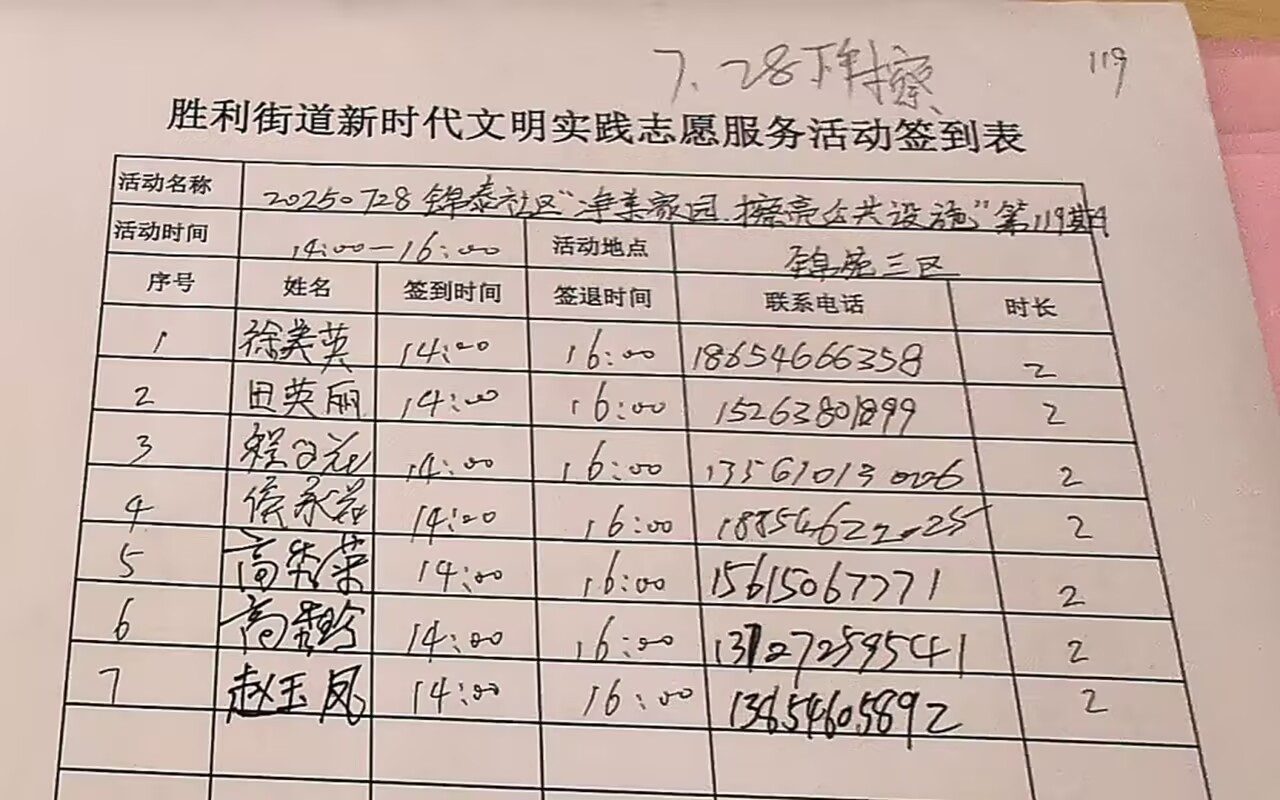 7.28下午擦 119
胜利街道新时代文明实践志愿服务活动签到表
活动名称 20250728锦泰社区"净美家园.擦亮公共设施"第119期
活动时间 14:00-16:00 活动地点 锦苑三区
序号 姓名 签到时间 签退时间 联系电话 时长
1 徐美英 14:00 16:00 18654666358 2
2 田英丽 14:00 16:00 15263801899 2
3 14:00 16:00 13561013006 2
4 侯永花 14:00 16:00 18854622025 2
5 高秀荣 14:00 16:00 15615067771 2
6 高 14:00 16:00 2
7 赵玉凤 14:00 16:00 13654605892 2